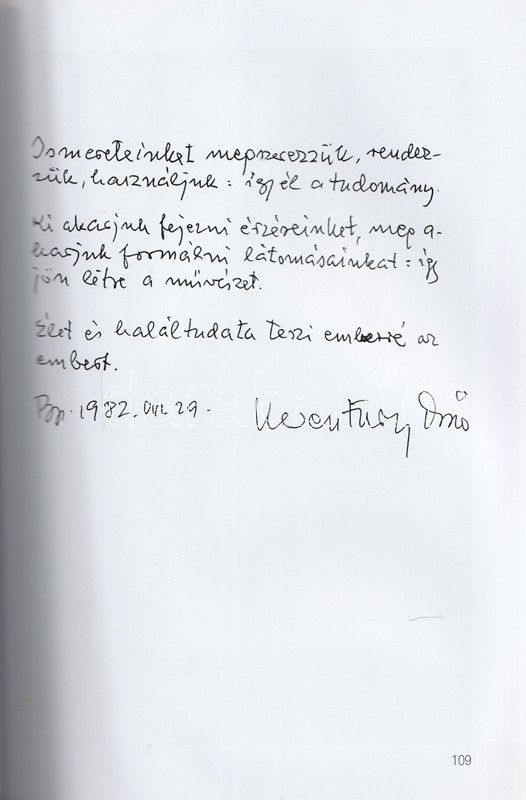 Ismereteinket megszerezzük, rendez-
zük, használjuk: így él a tudomány.
Ki akarjuk fejezni érzéseinket, meg a-
karjuk formálni látomásainkat: így
jön létre a művészet.
Élet és haláltudata teszi emberré az
embert.
Bp. 1982. VIII. 29.
Keresztury Dezső
darabanth
109